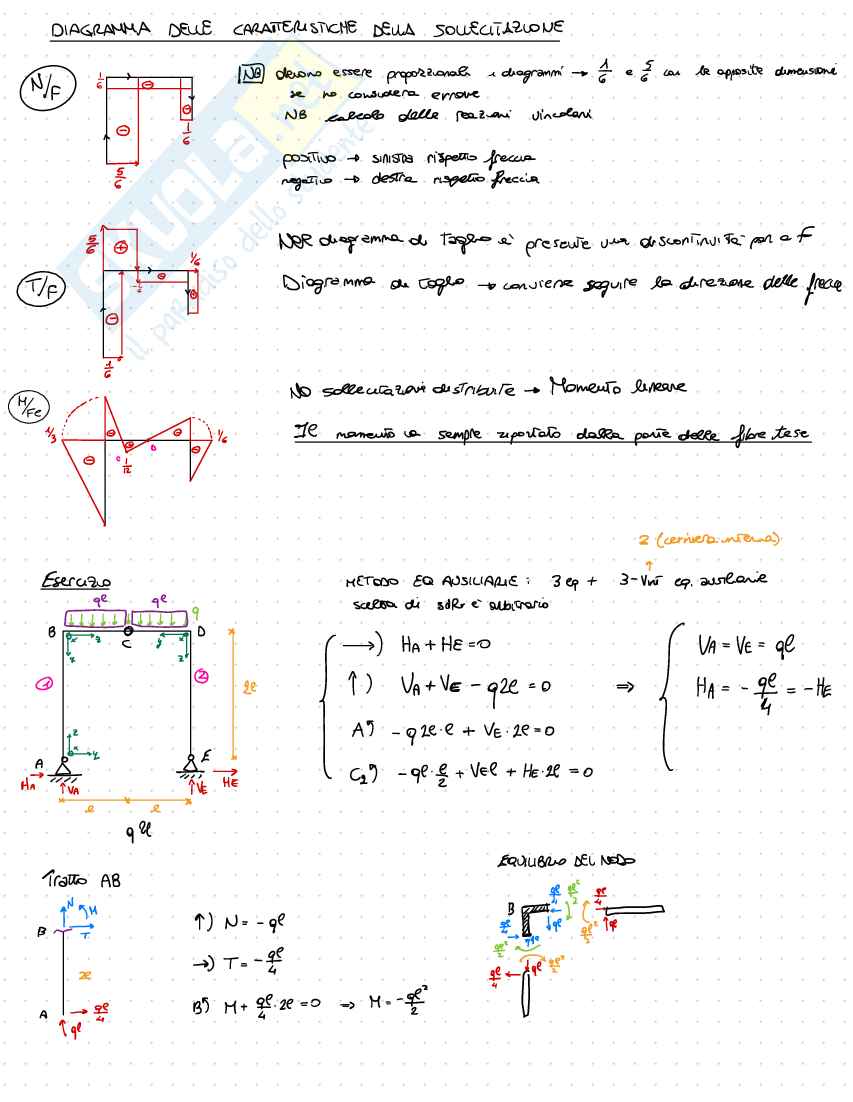 DIAGRAMMA DELLE CARATTERISTICHE DELLA SOLLECITAZIONE
N/F
1/6
5/6
1/6
NB devono essere proporzionali i diagrammi → 1/6 e 5/6 con le apposite dimensioni
se no considera errore
NB calcolo delle reazioni vincolari
positivo → sinistra rispetto freccia
negativo → destra rispetto freccia
T/F
5/6
1/6
1/6
Nel diagramma di taglio è presente una discontinuità pari a F
Diagramma di taglio → conviene seguire la direzione delle frecce
M/Fe
1/3
C
1/12
D
1/6
No sollecitazioni distribuite → Momento lineare
Il momento va sempre riportato dalla parte delle fibre tese
2 (cerniera interna)
Esercizio
METODO EQ AUSILIARIE: 3 eq + 3-Vint eq. ausiliarie
scelta di sdr è arbitrario
ql ql q
B C D
1 2
2l
A E
HA VA VE HE
l l
q2l
→) HA + HE = 0
↑) VA + VE - q2l = 0
A↰) - q2l·l + VE·2l = 0
C2↰) - ql·l/2 + VEl + HE·2l = 0
⇒
VA = VE = ql
HA = - ql/4 = - HE
Tratto AB
N M
B T
x
A ql/4
ql
↑) N = - ql
→) T = - ql/4
B↰) M + ql/4·2l = 0 ⇒ M = - ql²/2
EQUILIBRIO DEL NODO
B ql/4 ql²/2 ql/4
ql/4 ql ql²/2 ql
ql²/2 ql
ql/4 ql ql²/2